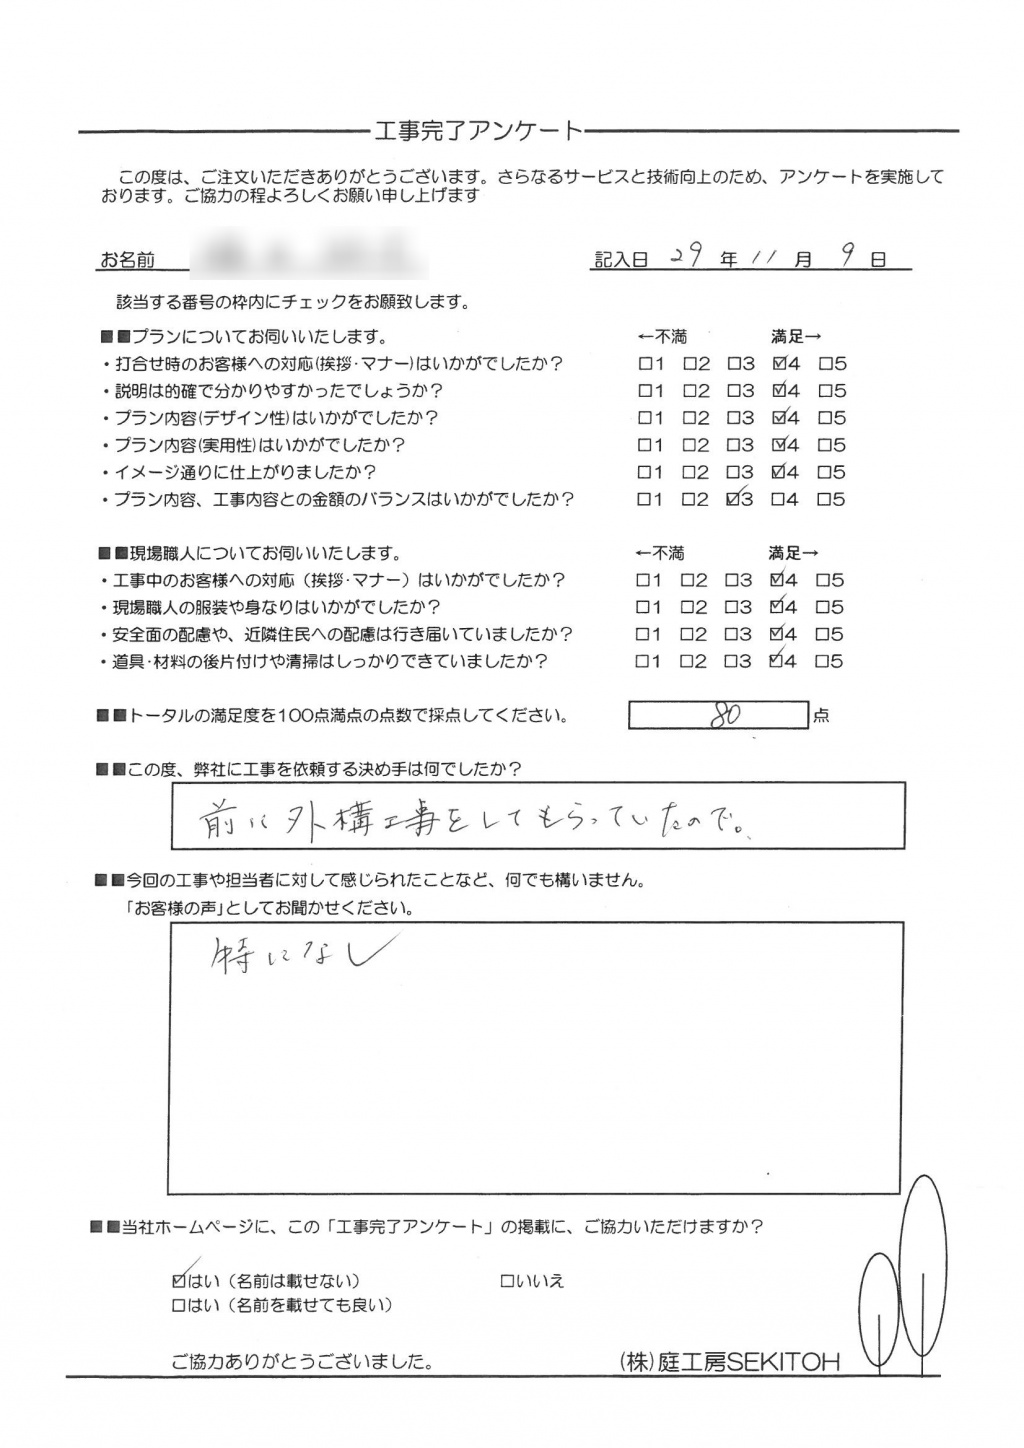 工事完了アンケート
この度は、ご注文いただきありがとうございます。さらなるサービスと技術向上のため、アンケートを実施して
おります。ご協力の程よろしくお願い申し上げます
お名前
記入日 29 年 11 月 9 日
該当する番号の枠内にチェックをお願致します。
■■プランについてお伺いいたします。 ←不満 満足→
・打合せ時のお客様への対応(挨拶・マナー)はいかがでしたか? □1 □2 □3 ☑4 □5
・説明は的確で分かりやすかったでしょうか? □1 □2 □3 ☑4 □5
・プラン内容(デザイン性)はいかがでしたか? □1 □2 □3 ☑4 □5
・プラン内容(実用性)はいかがでしたか? □1 □2 □3 ☑4 □5
・イメージ通りに仕上がりましたか? □1 □2 □3 ☑4 □5
・プラン内容、工事内容との金額のバランスはいかがでしたか? □1 □2 ☑3 □4 □5
■■現場職人についてお伺いいたします。 ←不満 満足→
・工事中のお客様への対応（挨拶・マナー）はいかがでしたか? □1 □2 □3 ☑4 □5
・現場職人の服装や身なりはいかがでしたか? □1 □2 □3 ☑4 □5
・安全面の配慮や、近隣住民への配慮は行き届いていましたか? □1 □2 □3 ☑4 □5
・道具・材料の後片付けや清掃はしっかりできていましたか? □1 □2 □3 ☑4 □5
■■トータルの満足度を100点満点の点数で採点してください。 80 点
■■この度、弊社に工事を依頼する決め手は何でしたか?
前に外構工事をしてもらっていたので。
■■今回の工事や担当者に対して感じられたことなど、何でも構いません。
「お客様の声」としてお聞かせください。
特になし
■■当社ホームページに、この「工事完了アンケート」の掲載に、ご協力いただけますか?
☑はい（名前は載せない） □いいえ
□はい（名前を載せても良い）
ご協力ありがとうございました。 (株)庭工房SEKITOH